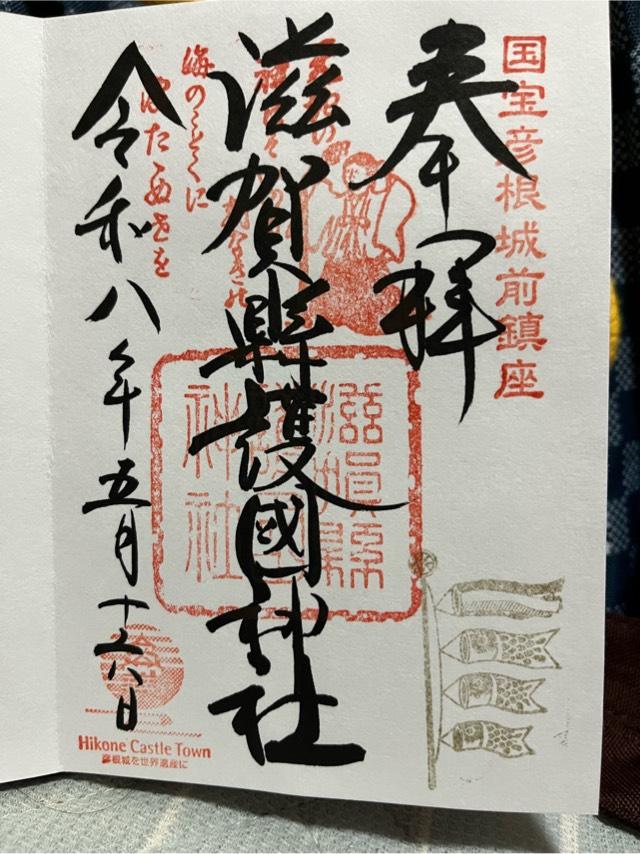 国宝彦根城前鎮座
奉拝
滋賀縣護國神社
滋賀縣護國神社
海のことくに
令和八年五月十六日
Hikone Castle Town
彦根城を世界遺産に